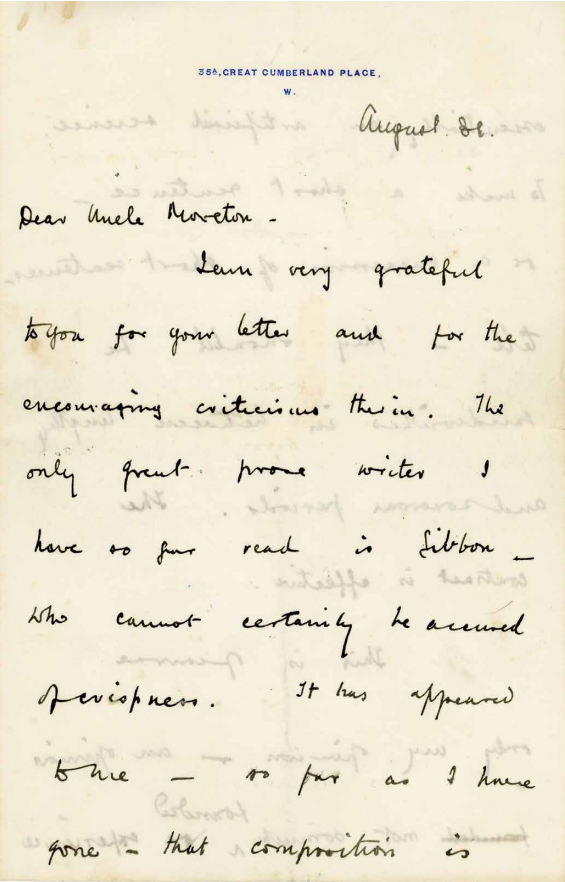 35A, GREAT CUMBERLAND PLACE,
W.
August 31.
Dear Uncle Moreton -
I am very grateful
to you for your letter and for the
encouraging criticisms therin. The
only great prose writer I
have so far read is Gibbon -
who cannot certainly be accused
of crispness. It has appeared
to me - so far as I have
gone - that composition is